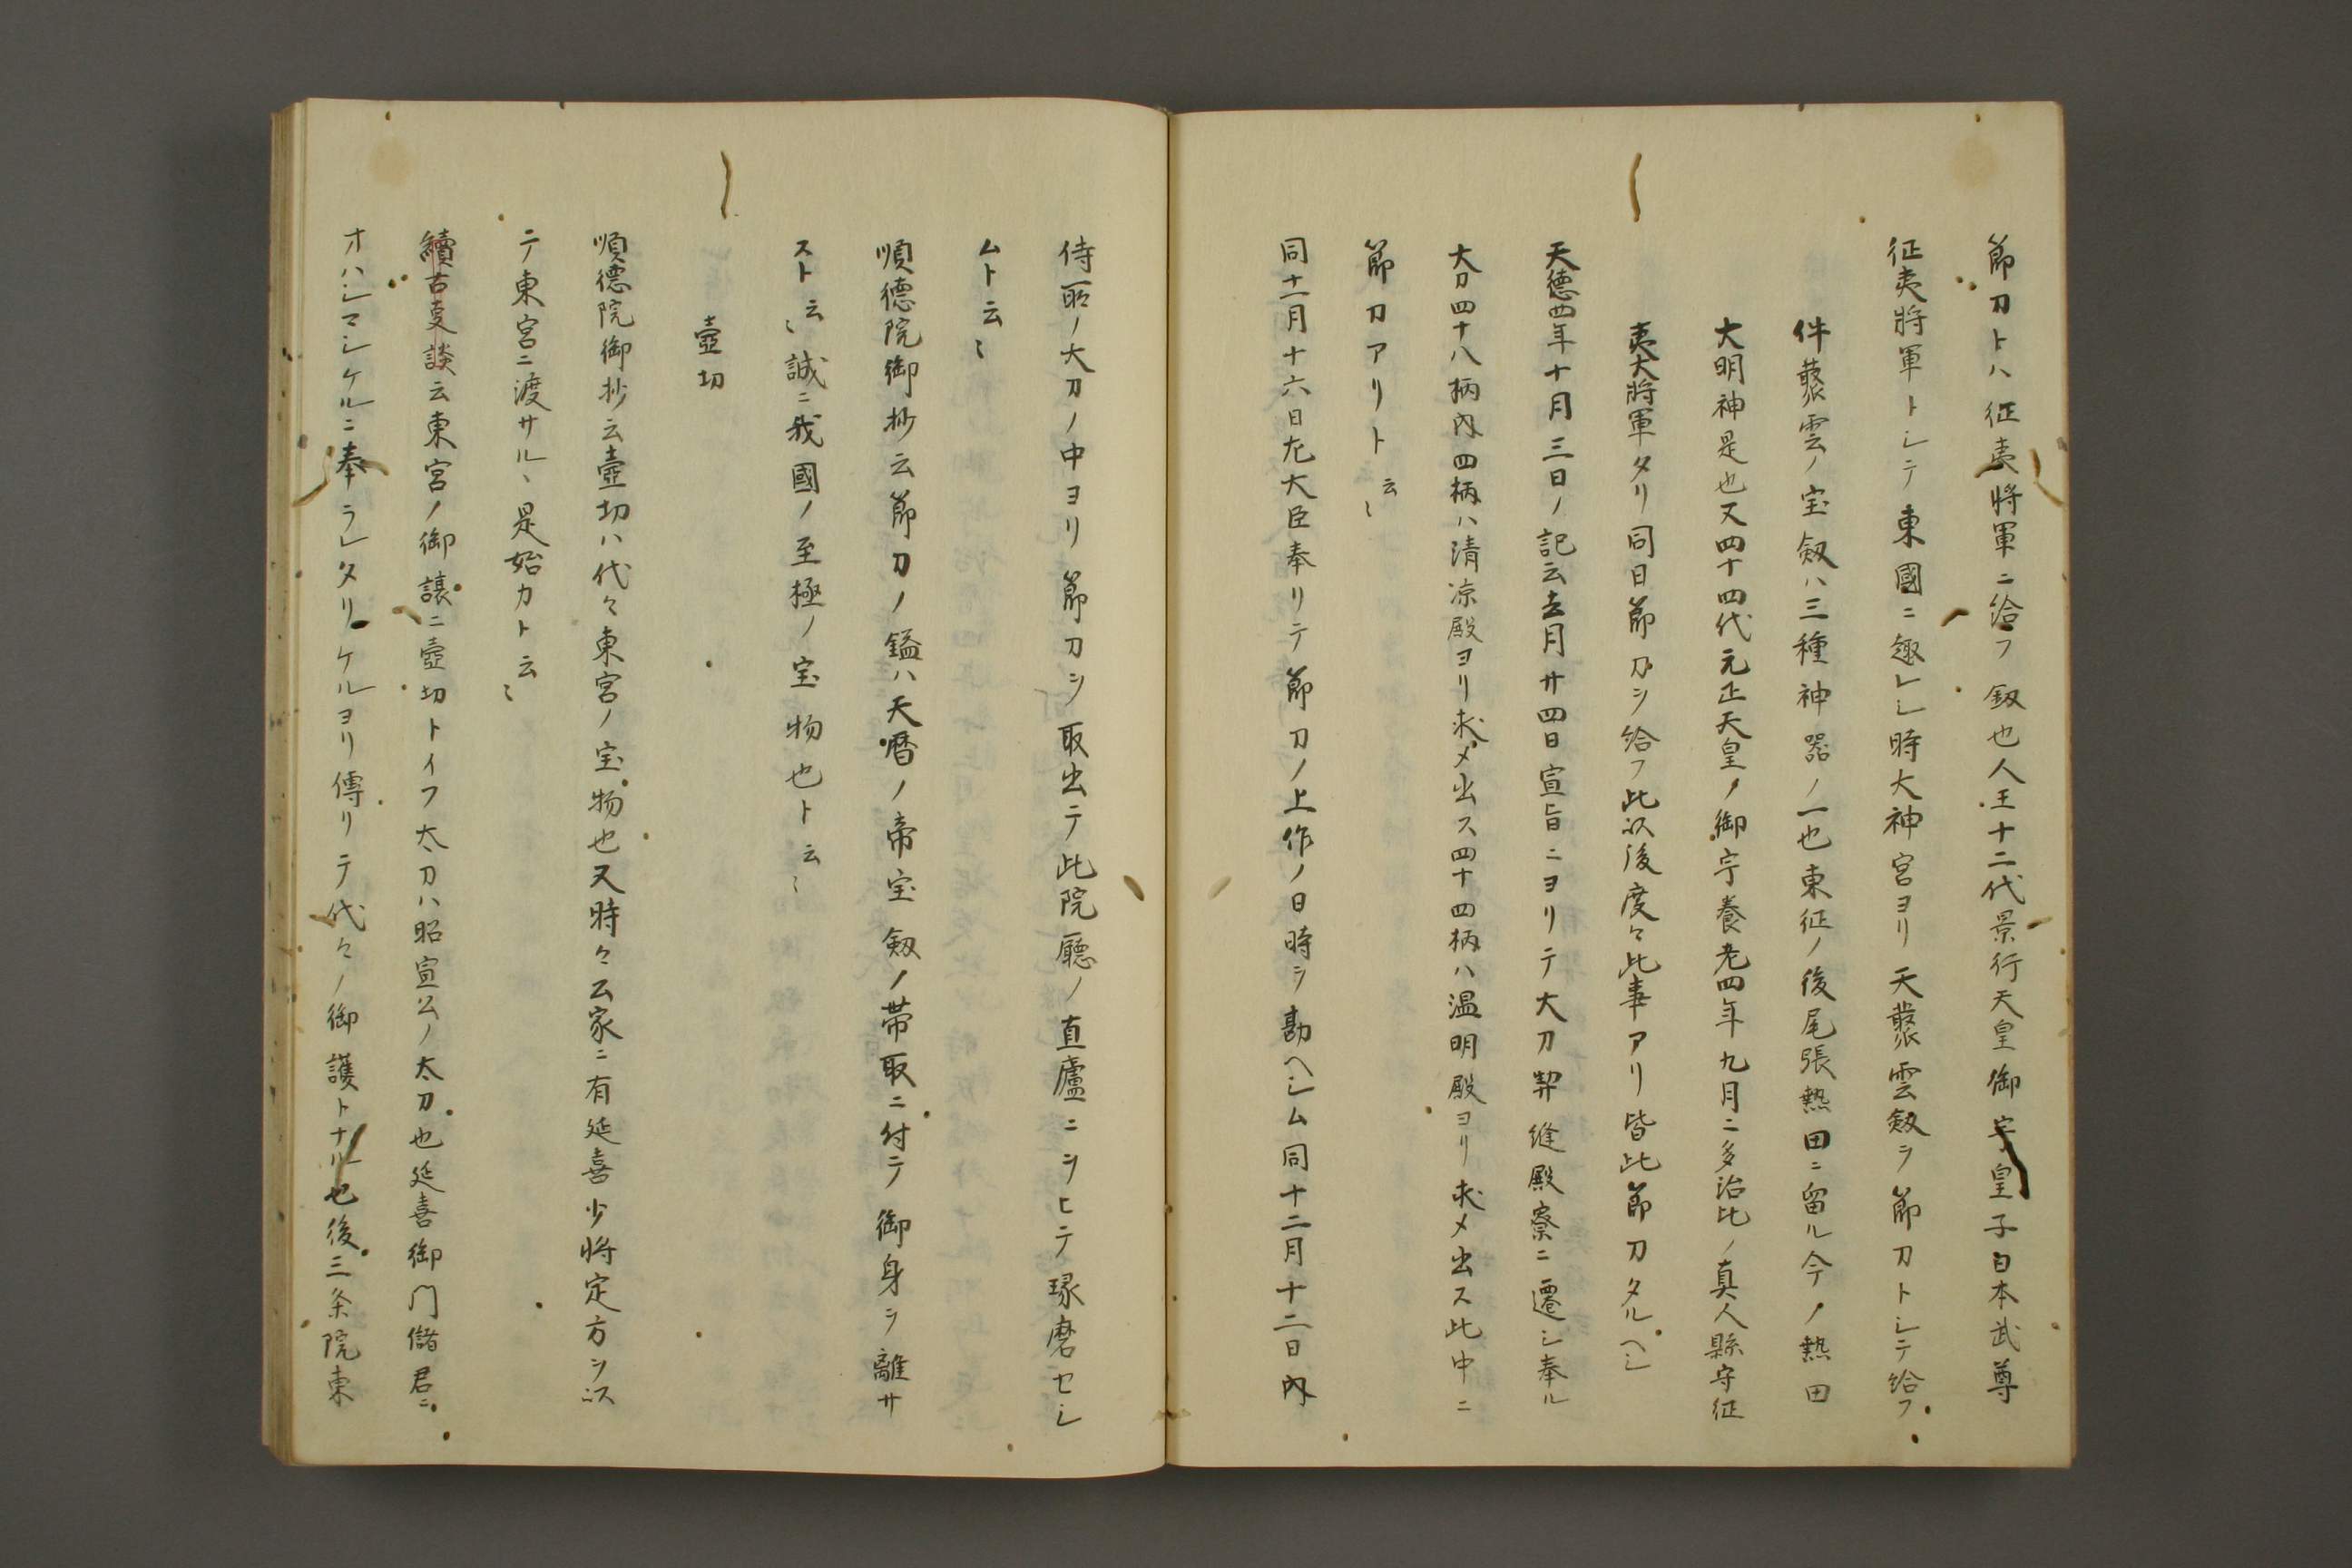 節刀トハ征夷將軍ニ給フ釼也人王十二代景行天皇御宇皇子日本武尊
征夷將軍トシテ東國ニ趣レシ時大神宮ヨリ天藂雲劔ヲ節刀トシテ給フ
件藂雲ノ宝劔ハ三種神器ノ一也東征ノ後尾張熱田ニ留ル今ノ熱田
大明神是也又四十四代元正天皇ノ御宇養老四年九月ニ多治比ノ真人縣守征
夷大將軍タリ同日節刀ヲ給フ此以後度々此事アリ皆此節刀タルヘシ
天德四年十月三日ノ記云去月廿四日宣旨ニヨリテ大刀契縫殿寮ニ遷シ奉ル
大刀四十八柄内四柄ハ清凉殿ヨリ求メ出ス四十四柄ハ温明殿ヨリ求メ出ス此中ニ
節刀アリト云々
同十一月十六日左大臣奉リテ節刀ノ上作ノ日時ヲ勘ヘシム同十二月十二日内
侍所ノ大刀ノ中ヨリ節刀ヲ取出テ此院廳ノ直廬ニヲヒテ琢磨セシ
ムト云々
順德院御抄云節刀ノ鎰ハ天暦ノ帝宝劔ノ帯取ニ付テ御身ヲ離サ
スト云々誠ニ我國ノ至極ノ宝物也ト云々
壺切
順德院御抄云壺切ハ代々東宮ノ宝物也又時々公家ニ有延喜少將定方ヲ以
テ東宮ニ渡サルヽ是始カト云々
續古事談云東宮ノ御譲ニ壺切トイフ太刀ハ昭宣公ノ太刀也延喜御門儲君ニ
オハシマシケルニ奉ラレタリケルヨリ傳リテ代々ノ御護トナル也後三条院東